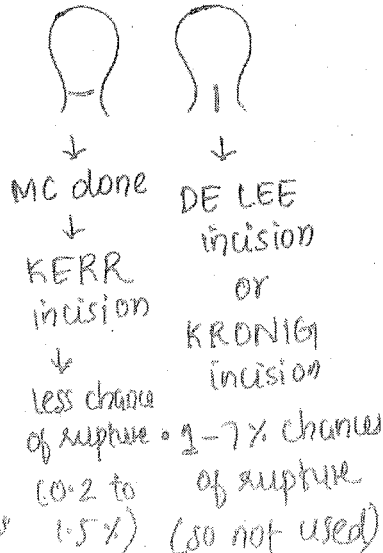 ↓
MC done
↓
KERR
incision
↓
less chance
of rupture
(0.2 to
1.5%)
↓
DE LEE
incision
or
KRONIG
incision
• 1-7% chances
of rupture
(so not used)